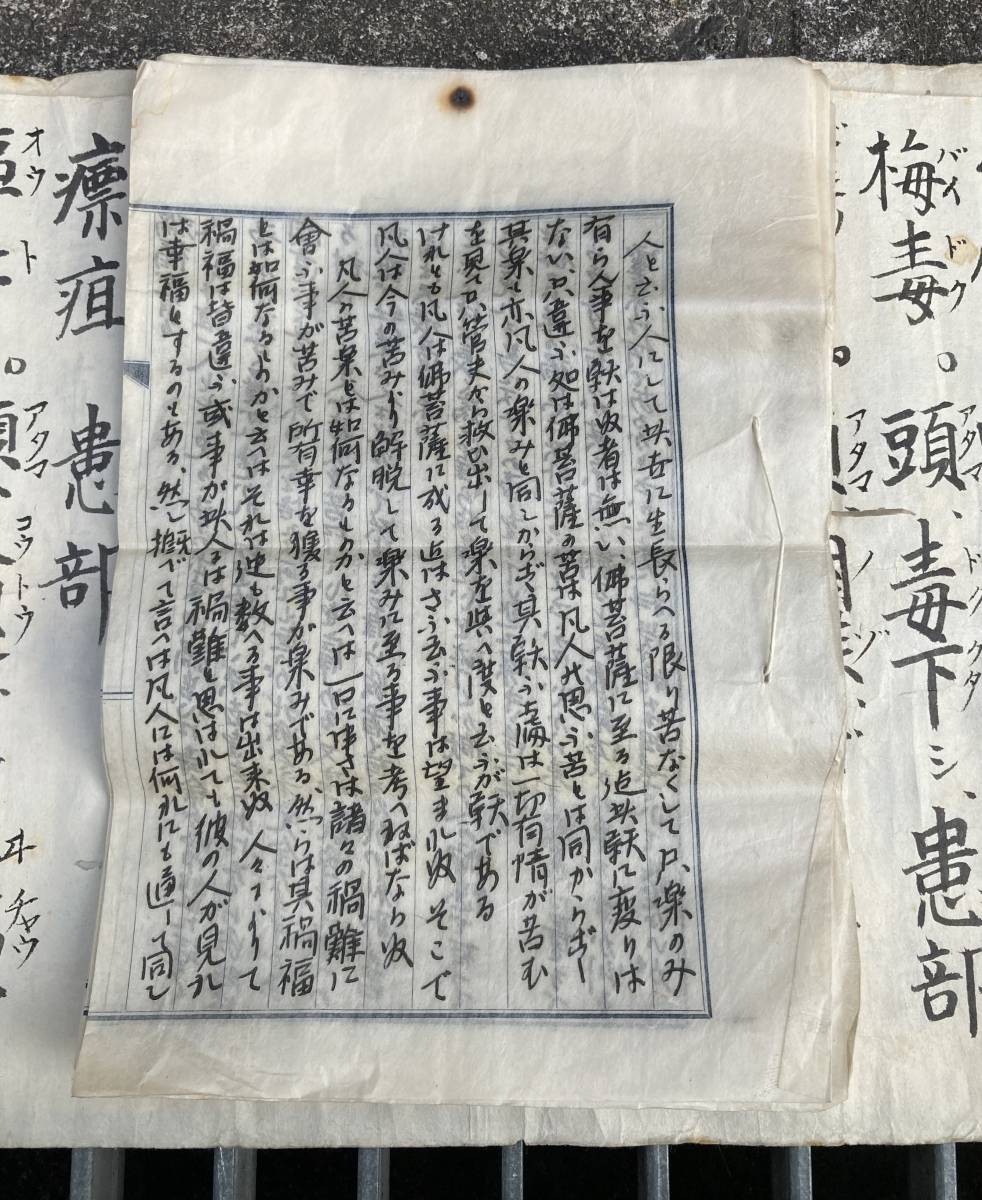 梅毒。頭、毒下シ、患部
バイドク
アタマ
ドククダ
アタマ
ノゾ
人と云ふ人にして此世に生長らへる限り苦なくして只楽のみ
有ら人事を願は以者は無い、佛菩薩に至る迄此願に変りは
ない只違ふ処は佛菩薩の苦は凡人の思ふ苦とは同からずし
其楽も亦凡人の楽みと同しからず其願ふ処は一切有情が苦む
を見ては菅夫から救ひ出して楽を與へ度と云ふが願である
けれとも凡人は佛菩薩に成る迄はさふ云ふ事は望まれぬ そこで
凡人は今の苦みより解脱して楽みに至る事を考へねばならぬ
凡人の苦楽とは如何なるものかと云へは一口に申さは諸々の禍難に
會ふ事が苦みで所有幸を獲る事が楽みである、然らは其禍福
とは如何なるものかと云へはそれは迚も数へる事は出来ぬ 人々によりて
禍福は皆違ふ或事が此人には禍難と思はれても彼の人が見れ
は幸福とするのもある、然し概べて言へは凡人には何れにも通して同し
瘭疽 患部
オウト
アタマ
コウトウ
ヰチャウ